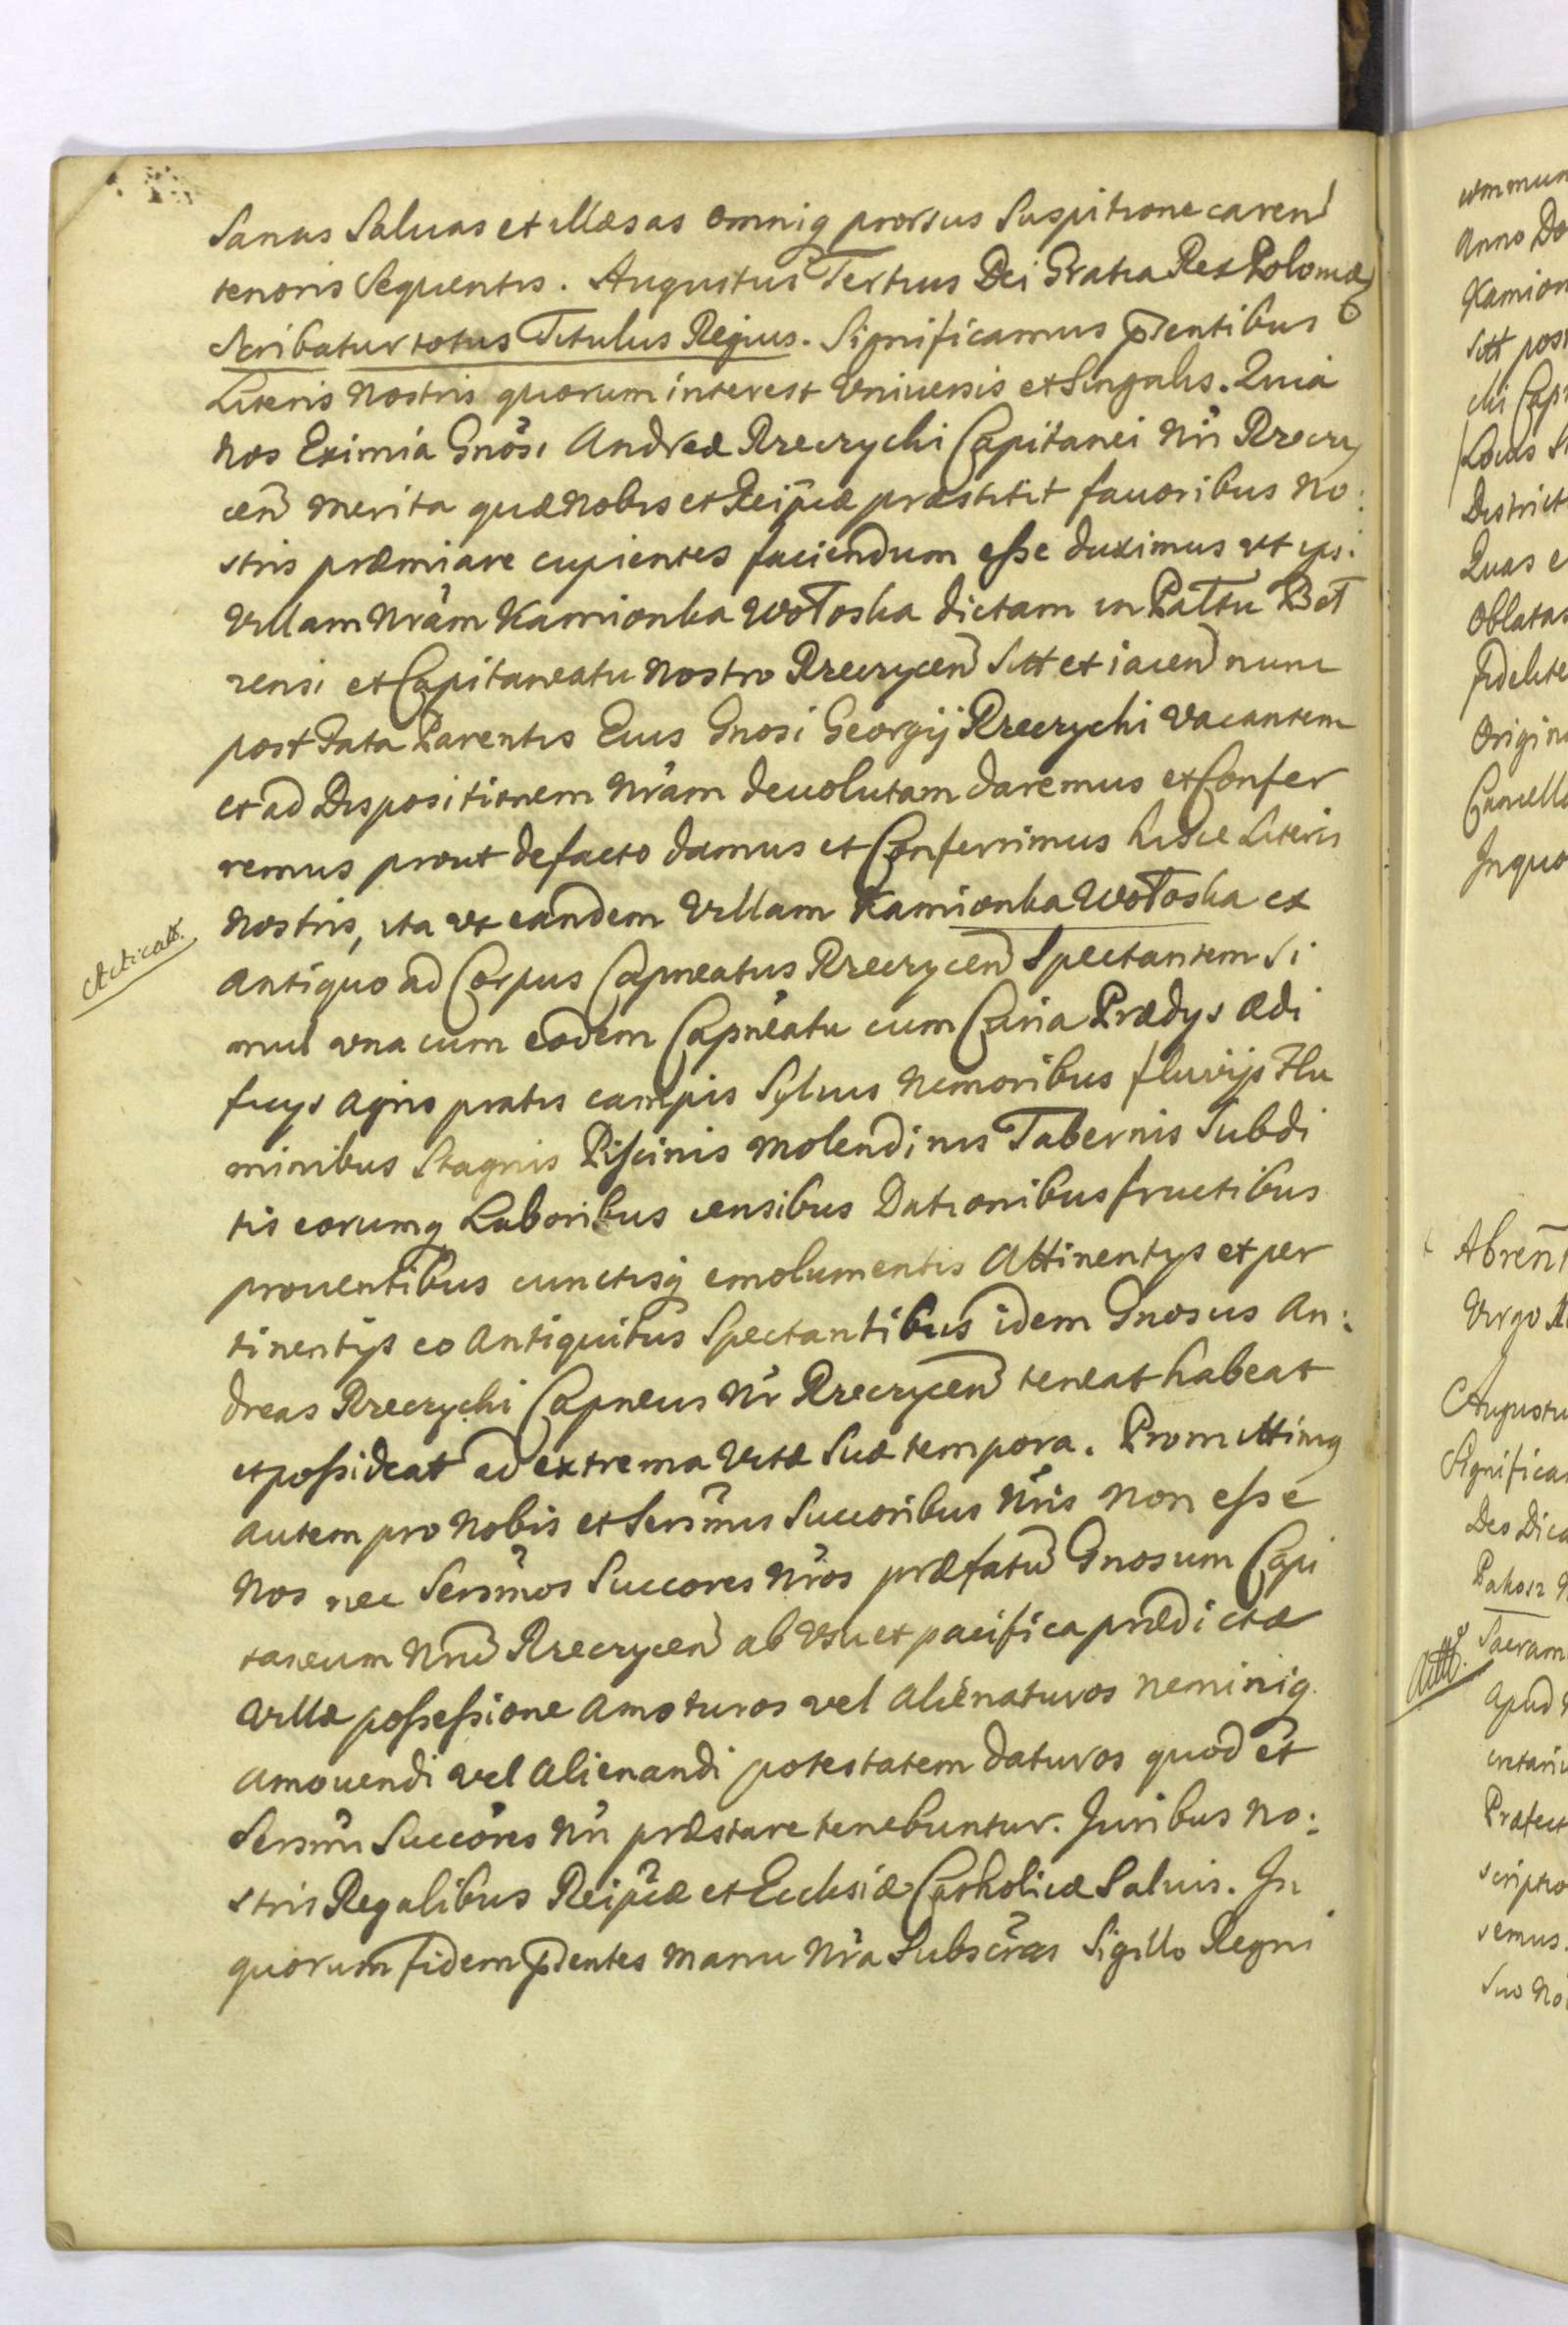 Sanas Saluas et illæsas omniq prorsus Suspitione caren
tenoris Sequentis. Augustus Tertius Dei Gratia Rex Poloniæ
Scribatur totus Titulus Regius. Significamus pñtibus
Literis Nostris quorum interest Vniuersis et Singulis. Quia
Nos Eximia Gnosi Andreæ Rzeczychi Capitanei Nri Rzeczy
cen merita quæ Nobis et Reipcæ præstitit fauoribus No:
stris præmiare cupientes faciendum esse duximus vt ipsi
Villam Nram Kamionka Wołoska dictam in Pałttu Beł
zensi et Capitaneatu Nostro Rzeczycen Sitt et iacen nunc
post Fata Parentis Eius Gnosi Georgij Rzeczychi Vacantem
et ad Dispositionem Nram deuolutam daremus et Confer
remus prout de facto damus et Conferrimus hisce Literis
Nostris, ita vt eandem Villam Kamionka Wołoska ex
Acticatt.
antiquo ad Corpus Capneatus Rzeczycen Spectantem Si
mul vna cum eodem Capneatu cum Curia Prædys ædi
ficys agris pratis campis Syluis Nemoribus fluvijs Flu
minibus Stagnis Piscinis Molendinis Tabernis Subdi
tis eorumq Laboribus censibus Dationibus fructibus
prouentibus cunctisq emolumentis Attinentys et per
tinentijs eo antiquitus Spectantibus idem Gnosus An:
dreas Rzeczychi Capneus Nr Rzeczycen teneat habeat
et possideat ad extrema Vitæ Suæ tempora. Promittimq
autem pro Nobis et Sersmis Succoribus Nris Non esse
Nos nec Sersmos Succores Nros præfatu Gnosum Capi
taneum Nru Rzeczycen ab Vsu et pacifica prædictæ
Villæ possessione amoturos vel alienaturos neminiq
amouendi vel alienandi potestatem daturos quod et
Sersmi Succores Nri præstare tenebuntur. Juribus No:
stris Regalibus Reipcæ et Ecclesiæ Catholicæ Saluis. In
quorum fidem pñtes manu Nra Subscras Sigillo Regni
Anno Do
Kamion
Sitt post
Locus
District
Quas e
Oblatas
fidelite
Origin
Cancella
Inquo
Abren
Virgo
Augustu
Significa
Des Dica
Pakosz
Sacram
Apud
Præfect
scriptio
semus.
Suo No